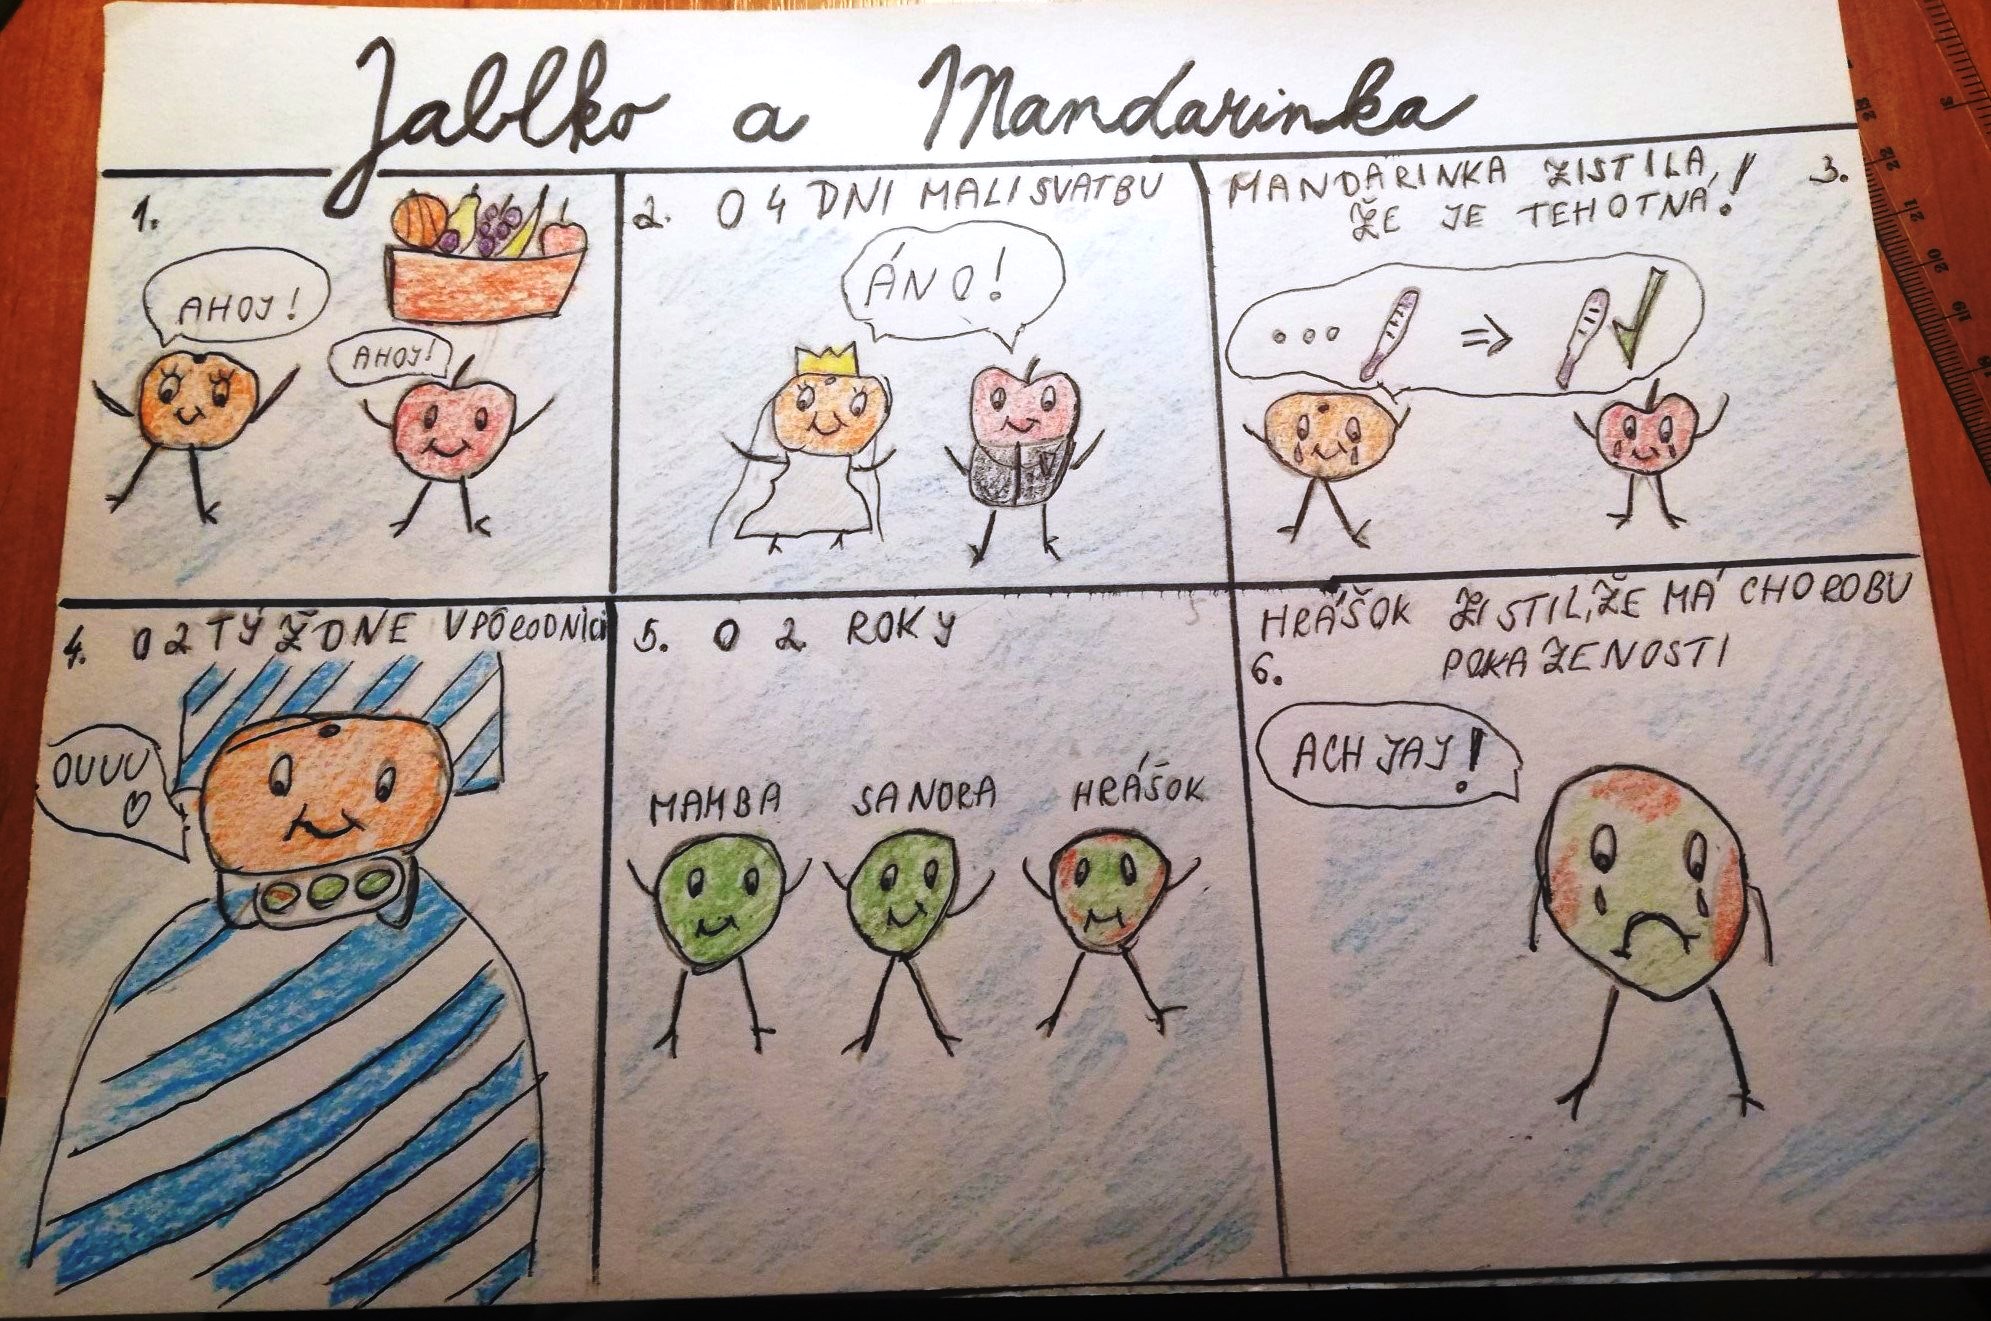 Jablko a Mandarinka
1.
AHOJ!
AHOJ!
2. O 4 DNI MALI SVATBU
ÁNO!
MANDARINKA ZISTILA,
ŽE JE TEHOTNÁ!
3.
... ⇒ ✓
4. O 2 TÝŽDNE V PÔRODNICI
OUUU
♡
5. O 2 ROKY
MAMBA SANDRA HRÁŠOK
HRÁŠOK ZISTIL, ŽE MÁ CHOROBU
6. POKAZENOSTI
ACH JAJ!